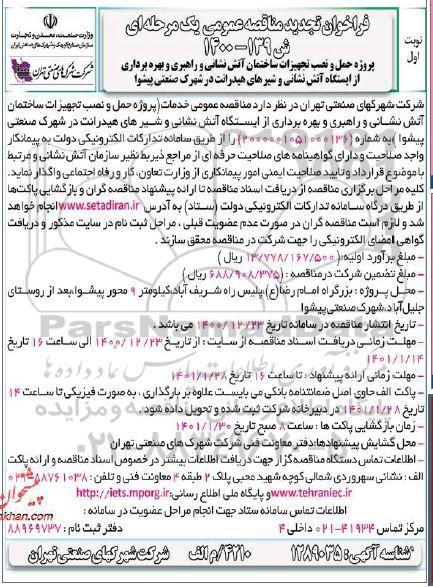 وزارت صنعت، معدن و تجارت
شرکت شهرکهای صنعتی تهران
فراخوان تجدید مناقصه عمومی یک مرحله ای
ش ۱۳۹-۱۴۰۰
نوبت اول
پروژه حمل و نصب تجهیزات ساختمان آتش نشانی و راهبری و بهره برداری
از ایستگاه آتش نشانی و شیرهای هیدرانت در شهرک صنعتی پیشوا
شرکت شهرکهای صنعتی تهران در نظر دارد مناقصه عمومی خدمات (پروژه حمل و نصب تجهیزات ساختمان
آتش نشانی و راهبری و بهره برداری از ایستگاه آتش نشانی و شیر های هیدرانت در شهرک صنعتی
پیشوا) به شماره (۲۰۰۰۰۰۱۰۵۱۰۰۰۱۳۶) را از طریق سامانه تدارکات الکترونیکی دولت به پیمانکار
واجد صلاحیت و دارای گواهینامه های صلاحیت حرفه ای از مراجع ذیربط نظیر سازمان آتش نشانی و مرتبط
با موضوع قرارداد و تایید صلاحیت ایمنی امور پیمانکاری از وزارت تعاون، کار و رفاه اجتماعی واگذار نماید.
کلیه مراحل برگزاری مناقصه از دریافت اسناد مناقصه تا ارائه پیشنهاد مناقصه گران و بازگشایی پاکت‌ها
از طریق درگاه سامانه تدارکات الکترونیکی دولت (ستاد) به آدرس www.setadiran.ir انجام خواهد
شد و لازم است مناقصه گران در صورت عدم عضویت قبلی، مراحل ثبت نام در سایت مذکور و دریافت
گواهی امضای الکترونیکی را جهت شرکت در مناقصه محقق سازند.
- مبلغ برآورد اولیه: (۱۳/۷۷۸/۱۶۷/۵۰۰ ریال)
- مبلغ تضمین شرکت در مناقصه: (۶۸۸/۹۰۸/۳۷۵ ریال)
- محل پروژه: بزرگراه امام رضا(ع)، پلیس راه شریف آباد، کیلومتر ۹ محور پیشوا، بعد از روستای
جلیل آباد، شهرک صنعتی پیشوا
- تاریخ انتشار مناقصه در سامانه تاریخ ۱۴۰۰/۱۲/۲۳ می باشد.
- مهلت زمانی دریافت اسناد مناقصه از سایت: از تاریخ ۱۴۰۰/۱۲/۲۳ الی ساعت ۱۶ تاریخ
۱۴۰۱/۱/۱۴
- مهلت زمانی ارائه پیشنهاد: تا ساعت ۱۶ تاریخ ۱۴۰۱/۱/۲۸
- پاکت الف حاوی اصل ضمانتنامه بانکی می بایست علاوه بر بارگذاری، به صورت فیزیکی تا ساعت ۱۴
تاریخ ۱۴۰۱/۱/۲۸ در دبیرخانه شرکت ثبت شده و تحویل داده شود.
- زمان بازگشایی پاکت ها: ساعت ۸ صبح تاریخ ۱۴۰۱/۱/۳۰
- محل گشایش پیشنهادها: دفتر معاونت فنی شرکت شهرک های صنعتی تهران
- اطلاعات تماس دستگاه مناقصه گزار جهت دریافت اطلاعات بیشتر در خصوص اسناد مناقصه و ارائه پاکت
الف: نشانی سهروردی شمالی کوچه شهید محبی پلاک ۲ طبقه ۴ معاونت فنی و تلفن:
www.tehraniec.ir و پایگاه ملی اطلاع رسانی: http://iets.mporg.ir
- اطلاعات تماس سامانه ستاد جهت انجام مراحل عضویت در سامانه:
مرکز تماس ۴۱۹۳۴-۰۲۱ داخلی ۴ دفتر ثبت نام: ۸۸۹۶۹۷۳۷
شناسه آگهی: ۱۲۸۹۰۳۵ ۴۲۱۰/م الف شرکت شهرکهای صنعتی تهران